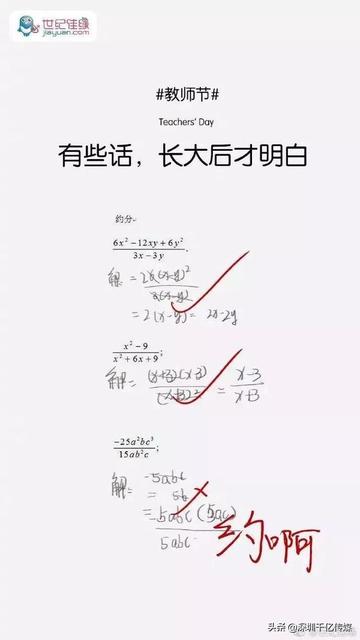 世纪佳缘
jiayuan.com
#教师节#
Teachers' Day
有些话，长大后才明白
约分
6x²-12xy+6y²
3x-3y
解 = 2
3(x-y)
= 2(x-y) = 2x-2y
x²-9
x²+6x+9
解 = (x+3)(x-3)
(x+3)²
= x-3
x+3
-25a²bc³
15ab²c
解: -5abc
= 5b
-5abc(5ac)
5abc
约啊
头条@深圳千亿传媒